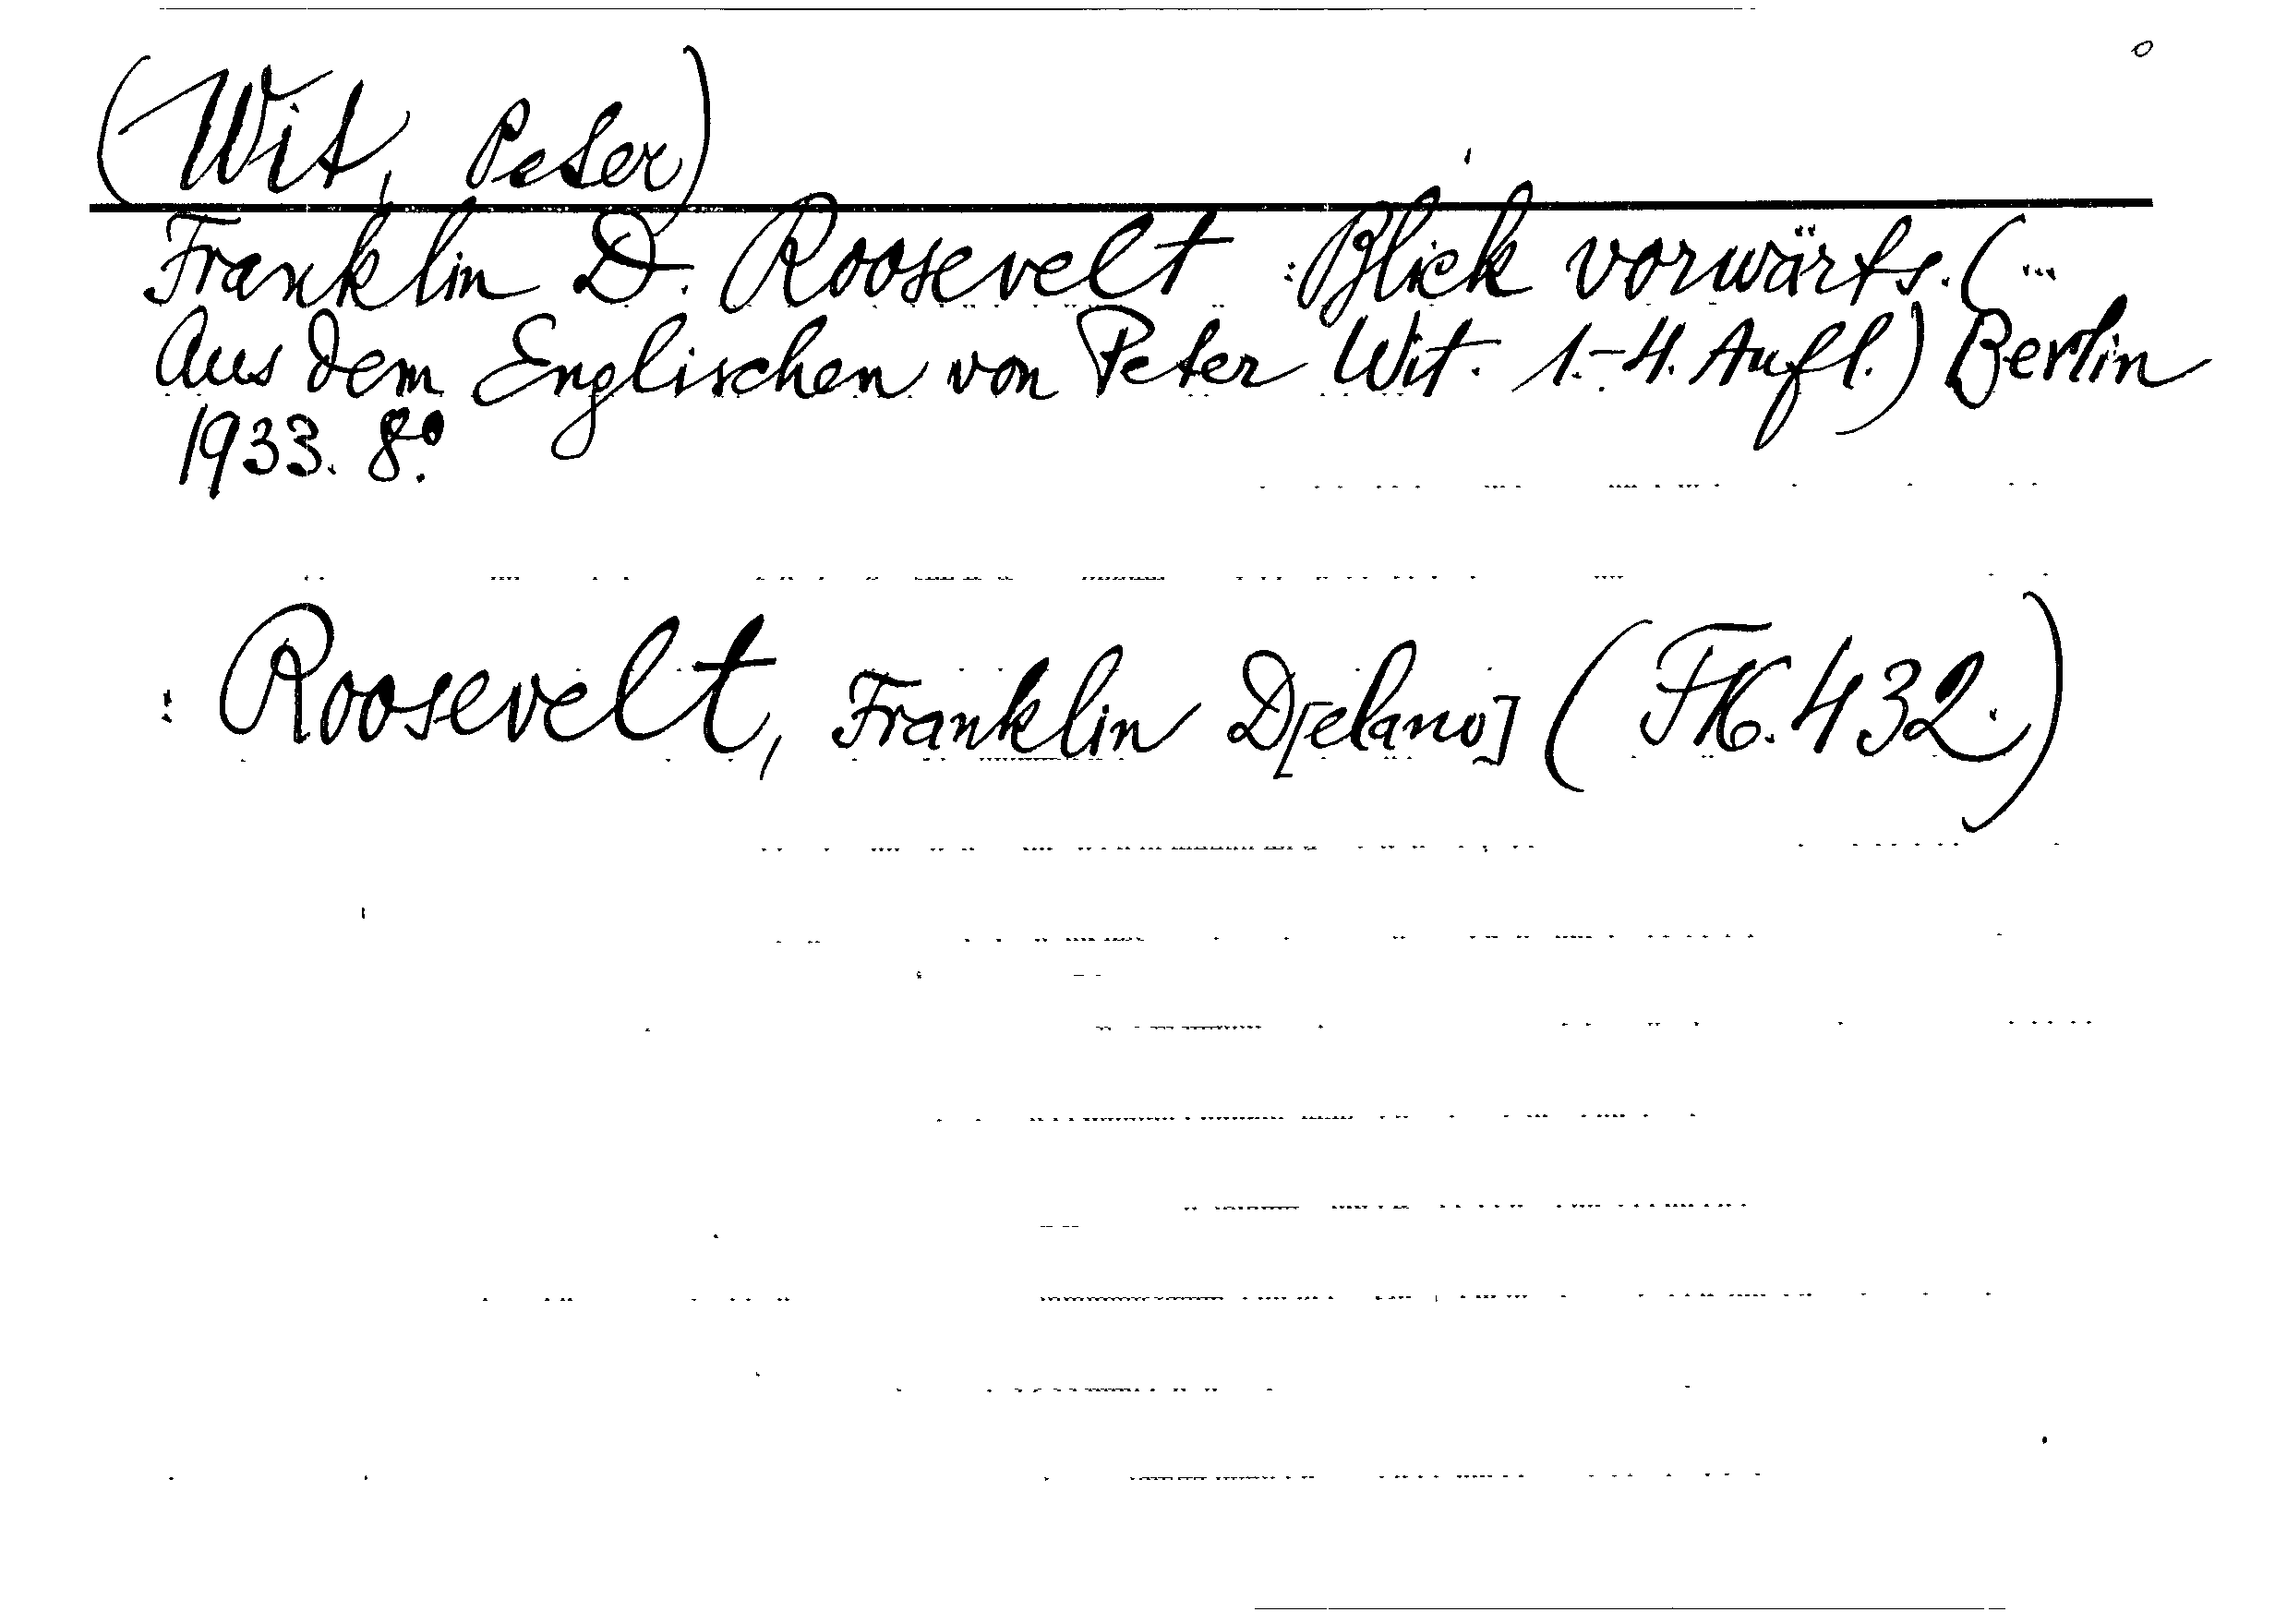 (Wit, Peter)
Franklin D. Roosevelt: Blick vorwärts. (...
Aus dem Englischen von Peter Wit. 1.-4. Aufl.) Berlin
1933. 8°.
: Roosevelt, Franklin D[elano] (FK. 432.)